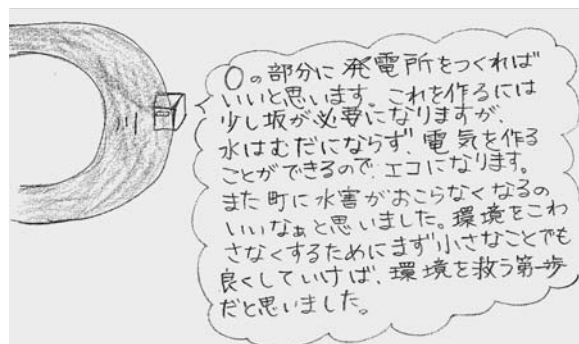 ○の部分に発電所をつくれば
いいと思います。これを作るには
少し坂が必要になりますが、
水はむだにならず、電気を作る
ことができるので、エコになります。
また町に水害がおこらなくなるの
いいなぁと思いました。環境をこわ
さなくするためにまず小さなことでも
良くしていけば、環境を救う第一歩
だと思いました。